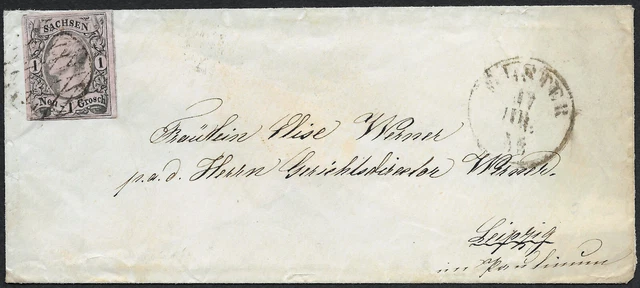 SACHSEN
1 1
Neu-1 Grosch.
Fräulein Elise Werner
p. a. d. Herrn Gerichtsdirector Werner.
Leipzig
im Paulinum